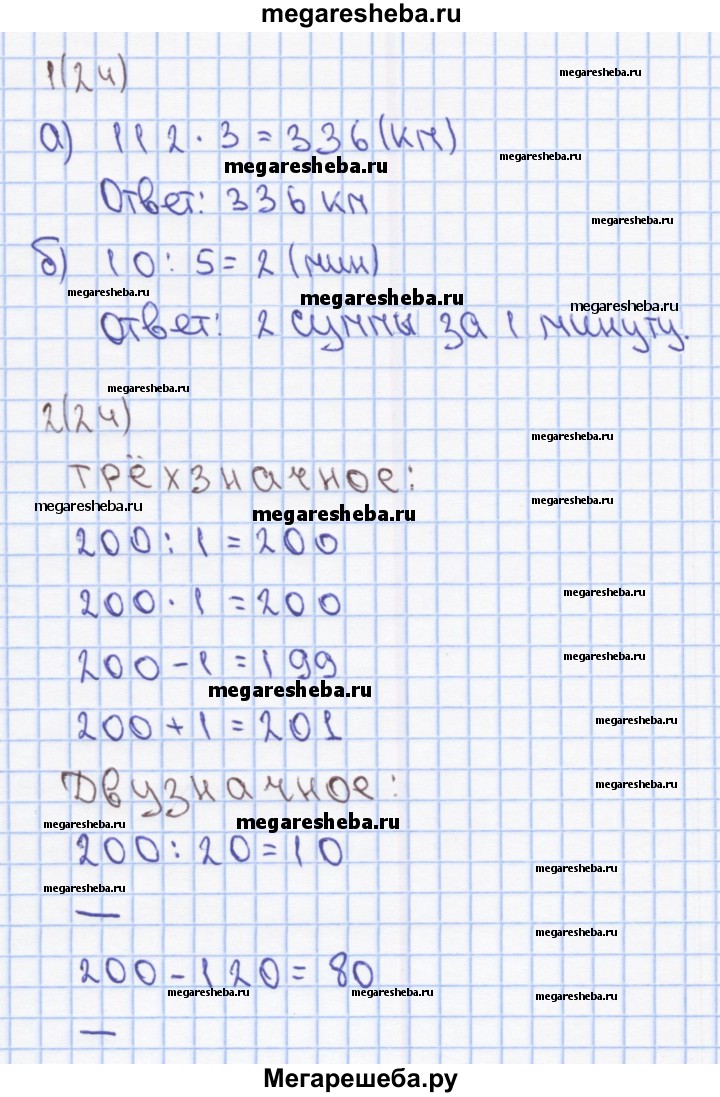 megaresheba.ru
1(24)
megaresheba.ru
а) 112 · 3 = 336 (км)
megaresheba.ru
megaresheba.ru
Ответ: 336 км
megaresheba.ru
б) 10 : 5 = 2 (мин)
megaresheba.ru
megaresheba.ru
megaresheba.ru
Ответ: 2 суммы за 1 минуту.
megaresheba.ru
2(24)
megaresheba.ru
трёхзначное:
megaresheba.ru
megaresheba.ru
megaresheba.ru
200 : 1 = 200
megaresheba.ru
200 · 1 = 200
megaresheba.ru
200 - 1 = 199
megaresheba.ru
megaresheba.ru
200 + 1 = 201
Двузначное:
megaresheba.ru
megaresheba.ru
megaresheba.ru
200 : 20 = 10
megaresheba.ru
megaresheba.ru
—
megaresheba.ru
200 - 120 = 80
megaresheba.ru
megaresheba.ru
megaresheba.ru
—
Мегарешеба.ру